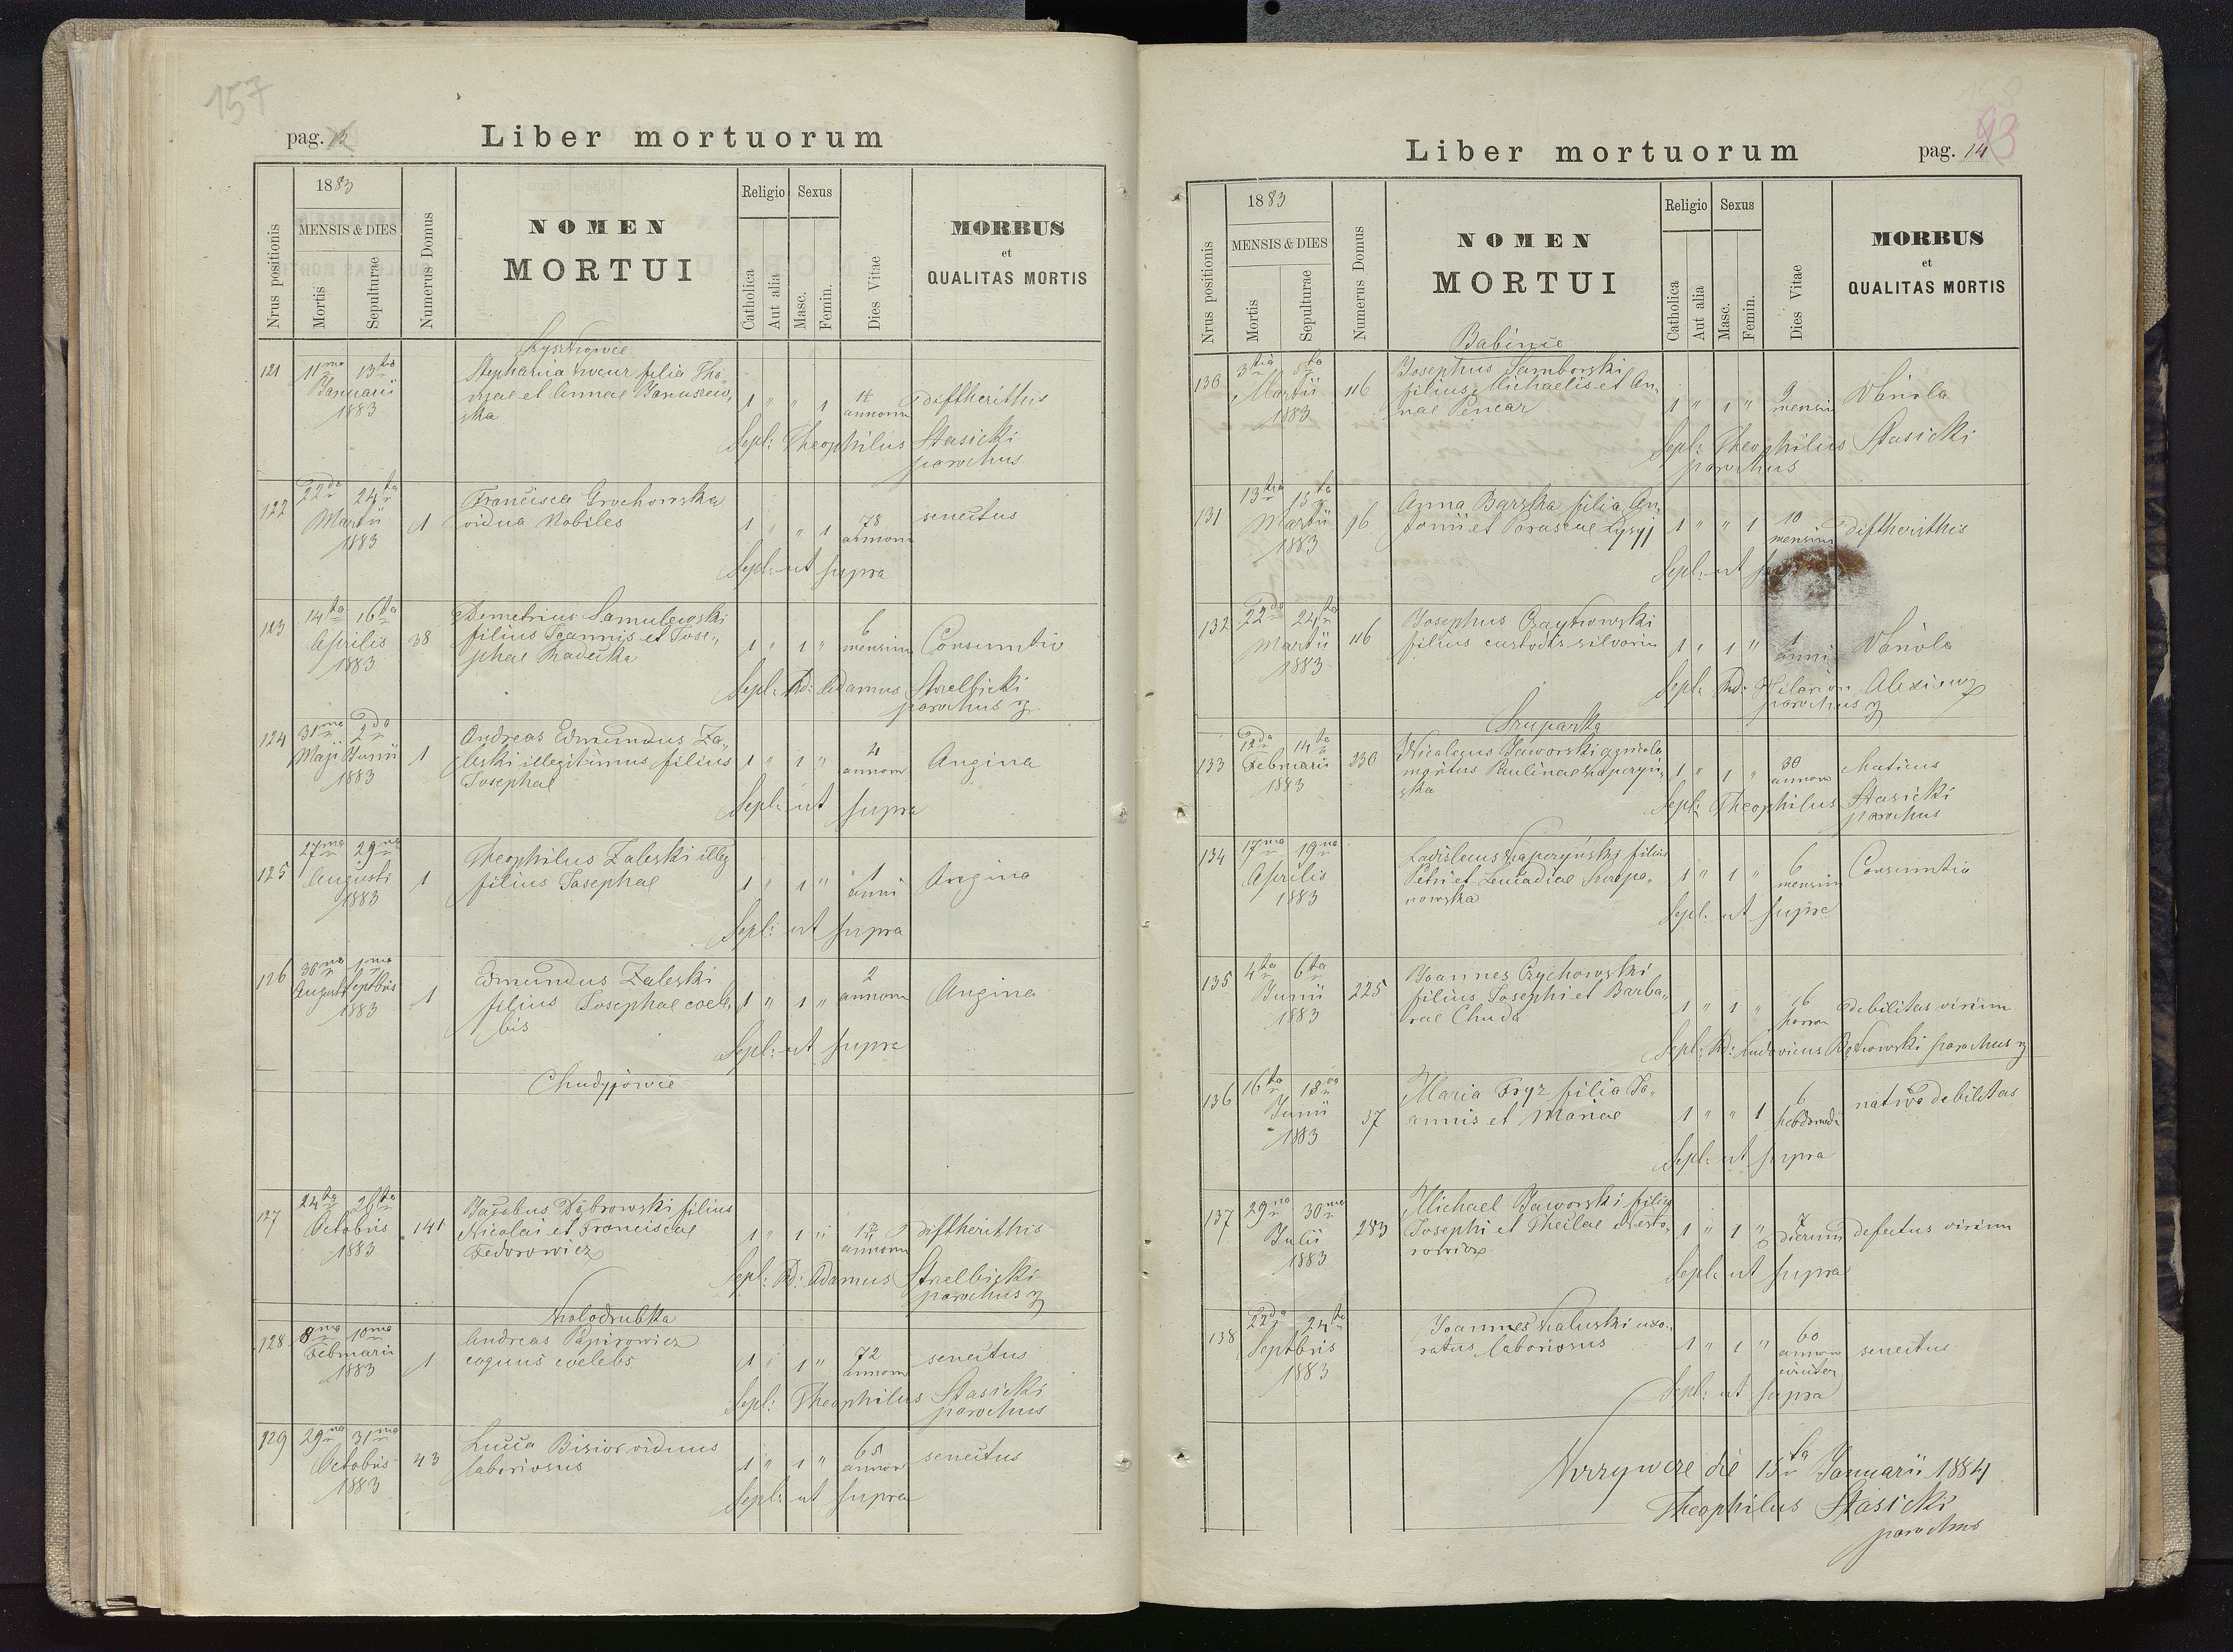 157
pag. 13
Liber mortuorum
Nrus positionis
1883
MENSIS & DIES
Mortis
Sepulturae
Numerus Domus
NOMEN
MORTUI
Religio
Catholica
Aut alia
Sexus
Masc.
Femin.
Dies Vitae
MORBUS
et
QUALITAS MORTIS
121 11ma 13tia Stephania filia Tho
Januarii mae et Annae Januszew
1883 ska 1 " " 1 annorum diftherithis
Sepl: Theophilus Stasicki
parochus
122 22da 24ta Francisca Grochowska
Martii 1 vidua Nobiles 1 " " 1 78 senectus
1883 annorum
Sepl: ut supra
123 14ta 16ta Demetrius Samulewski
Aprilis 38 filius Joannis et Jose„ 6
1883 phae 1 " 1 " mensium Consumtio
Sepl: Rd: Adamus Strelbicki
parochus
124 31ma 2da Andreas Edmundus Za„
Maji Junii 1 leski illegitimus filius 1 " 1 " 4 Angina
1883 Josephae annorum
Sepl: ut supra
125 27ma 29na Theophilus Zaleski illeg
Augusti 1 filius Josephae 1 " 1 " 1 Angina
1883 anni
Sepl: ut supra
126 30ma 1ma Edmundus Zaleski 2
Augusti Septbris 1 filius Josephae coele„ 1 " 1 " annorum Angina
1883 bis
Sepl: ut supra
Chudyjowie
127 24ta 26ta Jacobus Dąbrowski filius
Octobris 141 Nicolai et Franciscae 1 " 1 " diftherithis
1883 Fedorowicz annorum
Sepl: Rd: Adamus Strelbicki
parochus
Kolodrubka
128 8ma 10ma Andreas Papirowicz
Februarii 1 coquus coelebs 1 " 1 " 72 senectus
1883 annorum
Sepl: Theophilus Stasicki
parochus
129 29na 31ma Lucca viduus
Octobris 43 laboriosus 1 " 1 " 65 senectus
1883 annor
Sepl: ut supra
Liber mortuorum
pag. 14
93
Nrus positionis
1883
MENSIS & DIES
Mortis
Sepulturae
Numerus Domus
NOMEN
MORTUI
Religio
Catholica
Aut alia
Sexus
Masc.
Femin.
Dies Vitae
MORBUS
et
QUALITAS MORTIS
Babince
130 3tia 5ta Josephus Samborski
Martii 116 filius Michaelis et An„ 9 Variola
1883 nae 1 " 1 " mensium
Sepl: Theophilus Stasicki
parochus
131 13tia 15ta Anna Barska filia An„
Martii 16 tonii et Parascae 1 " " 1 10 diftherithis
1883 mensium
Sepl: ut
132 22da 24ta Josephus Czaykowski
Martii 116 filius custodis silvarum 1 " 1 " 1 Variola
1883 anni
Sepl: Rd: Hilarion Alexiewicz
parochus
Szuparka
133 12da 14ta Nicolaus Jaworski agricola
Februarii 230 maritus Paulinae Kaperyń„ 1 " 1 " 30
1883 ska annorum
Sepl: Theophilus Stasicki
parochus
134 17ma 19na Ladislaus Kaperyński filius
Aprilis Petri et Leucadiae 1 " 1 " 6 Consumtio
1883 nowska mensium
Sepl: ut supra
135 4ta 6ta Joannes Czychowski
Junii 225 filius Josephi et Barba„ 1 " 1 " 6 debilitas virium
1883 rae Chuda
Sepl: Rd: Ludovicus parochus
136 16ta 18va Maria Fryz filia Jo„
Junii 37 annis et Mariae 1 " " 1 6 nativa debilitas
1883 hebdomad
Sepl: ut supra
137 29na 30ma Michael Jaworski filius
Julii 283 Josephi et Theclae Nesto„ 1 " 1 " 7 dierum defectus virium
1883 rowicz
Sepl: ut supra
138 22da 24ta Joannes Kaluski uxo„
Septbris ratus laboriosus 1 " 1 " 60 annor circiter senectus
1883
Sepl: ut supra
Krzywcze die 15ta Januarii 1884
Theophilus Stasicki
parochus